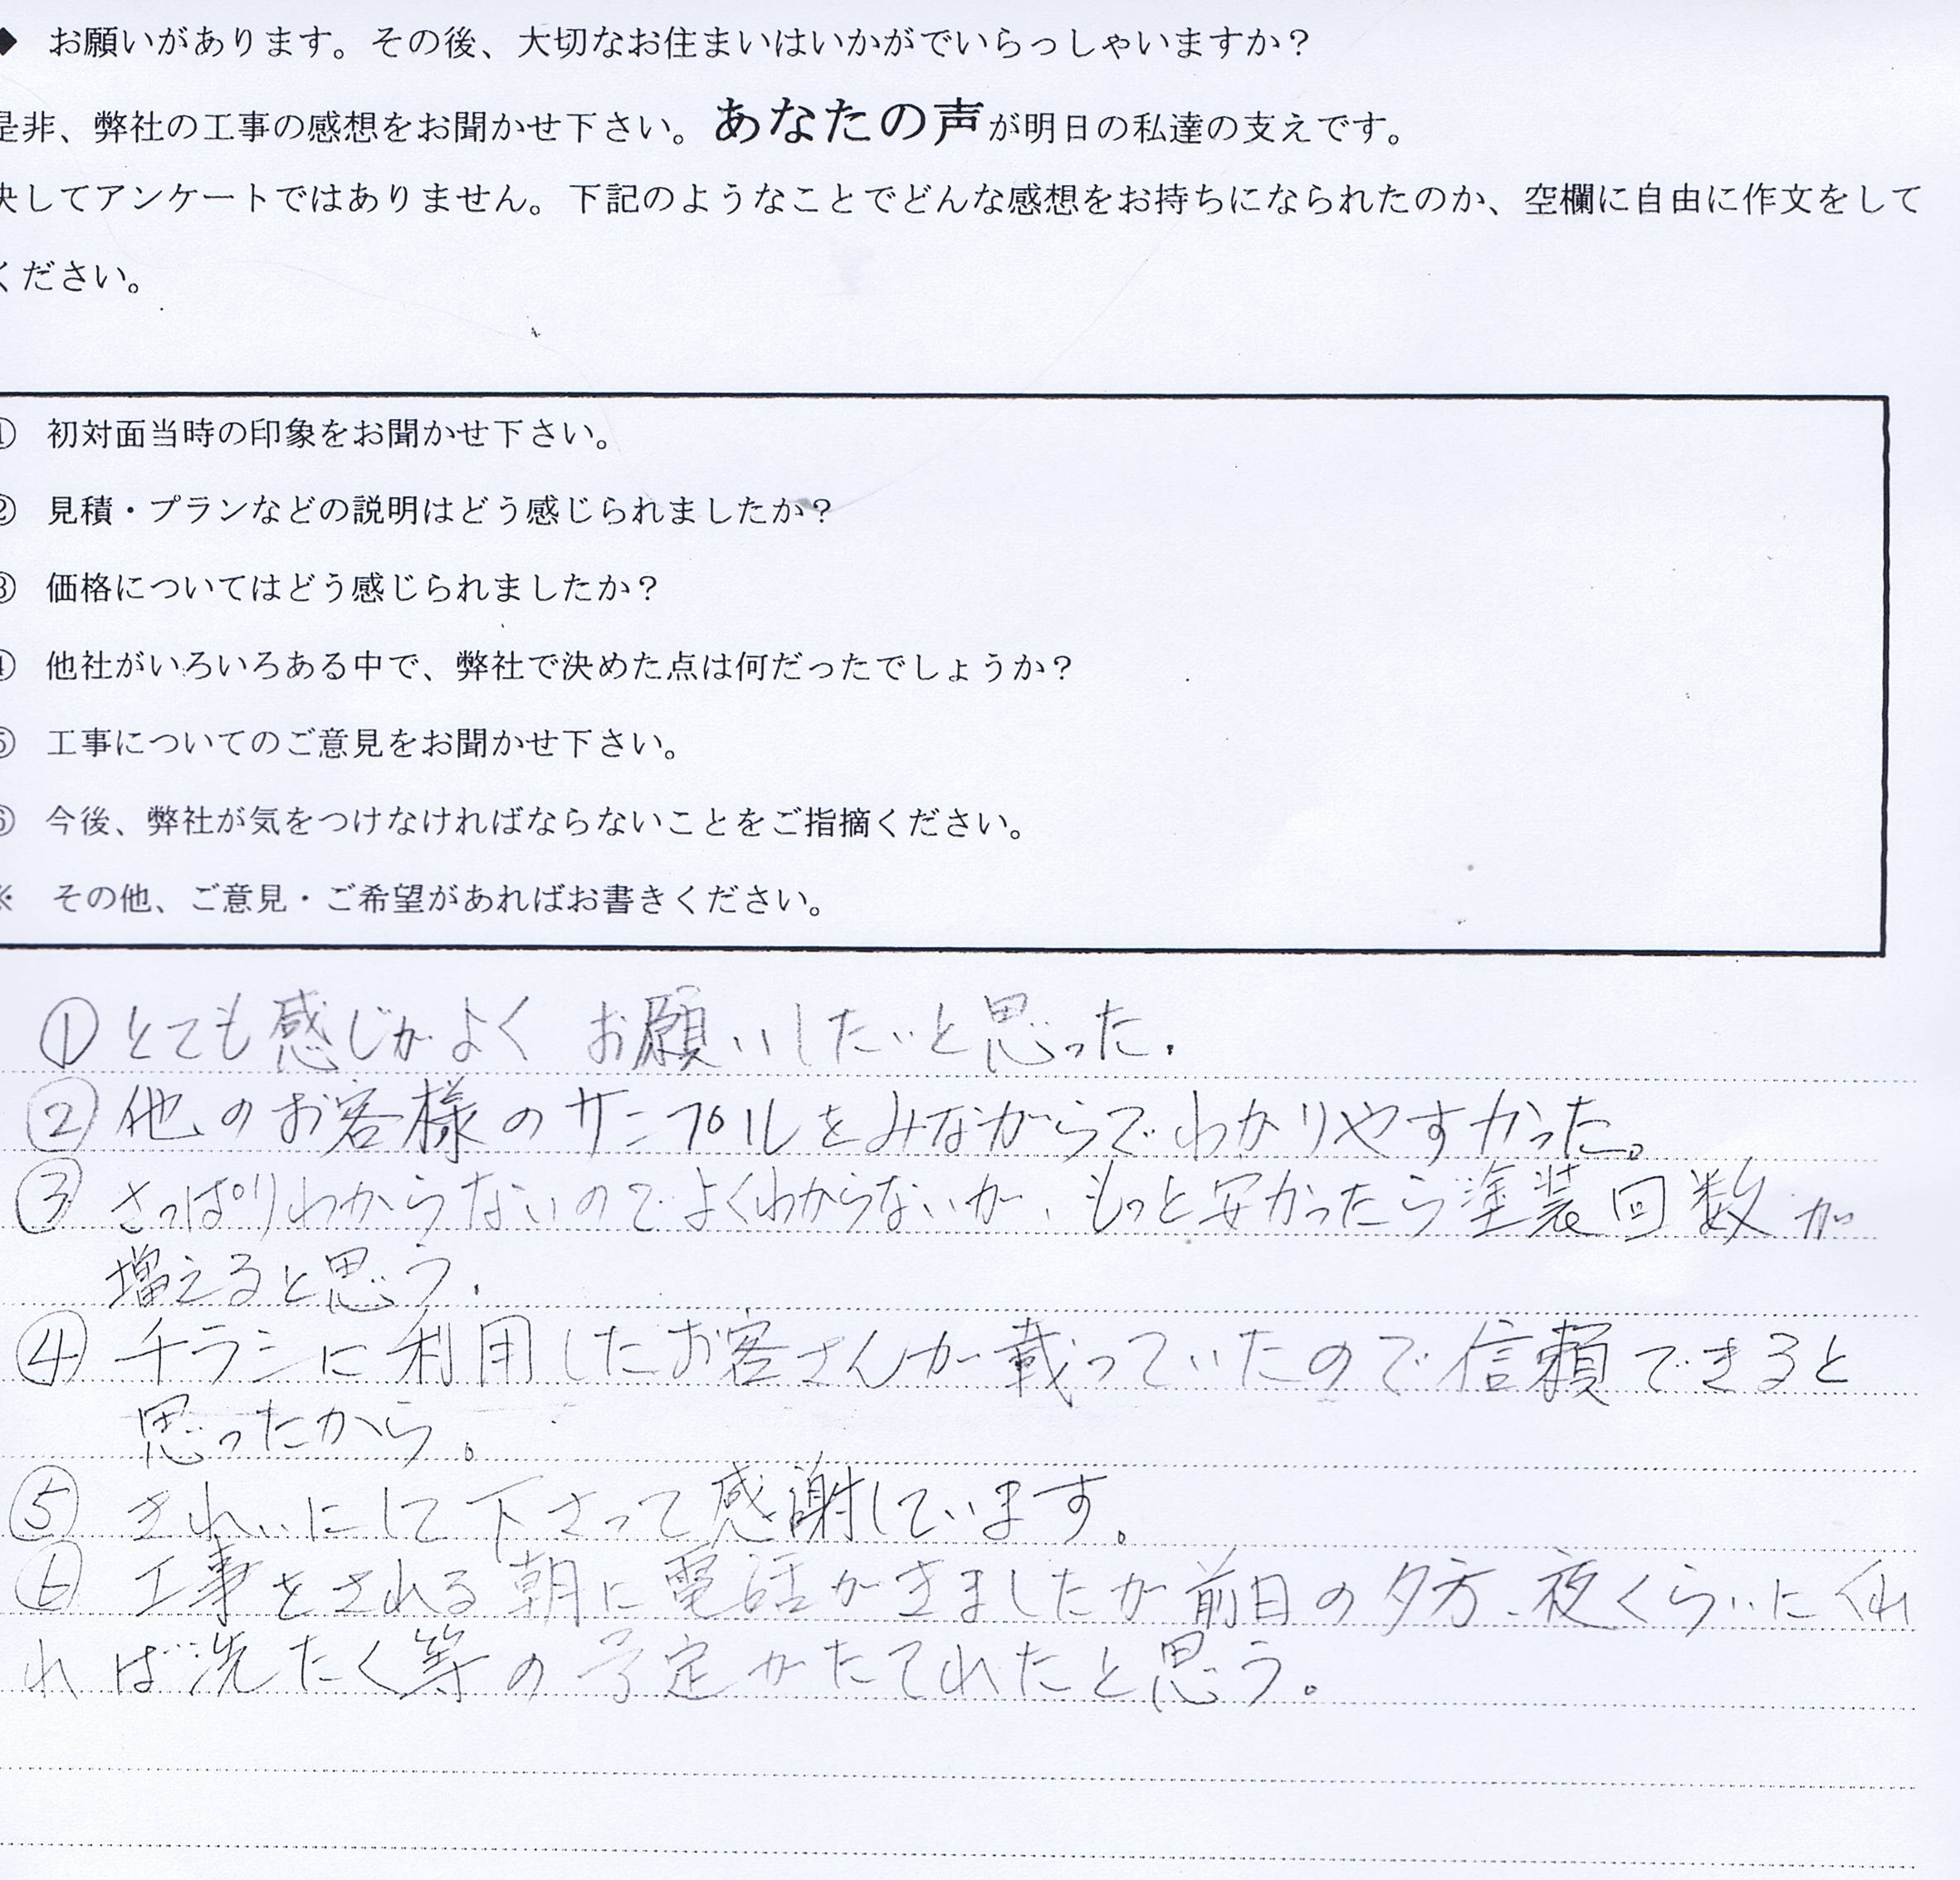 ◆ お願いがあります。その後、大切なお住まいはいかがでいらっしゃいますか？
是非、弊社の工事の感想をお聞かせ下さい。あなたの声が明日の私達の支えです。
決してアンケートではありません。下記のようなことでどんな感想をお持ちになられたのか、空欄に自由に作文をして
ください。
① 初対面当時の印象をお聞かせ下さい。
② 見積・プランなどの説明はどう感じられましたか？
③ 価格についてはどう感じられましたか？
④ 他社がいろいろある中で、弊社で決めた点は何だったでしょうか？
⑤ 工事についてのご意見をお聞かせ下さい。
⑥ 今後、弊社が気をつけなければならないことをご指摘ください。
※ その他、ご意見・ご希望があればお書きください。
① とても感じがよく お願いしたいと思った.
② 他のお客様のサンプルをみながらでわかりやすかった。
③ さっぱりわからないのでよくわからないが、もっと安かったら塗装回数が
増えると思う.
④ チラシに利用したお客さんが載っていたので信頼できると
思ったから。
⑤ きれいにして下さって感謝しています。
⑥ 工事をされる朝に電話がきましたが前日の夕方、夜くらいにくれ
れば洗たく等の予定がたてれたと思う。